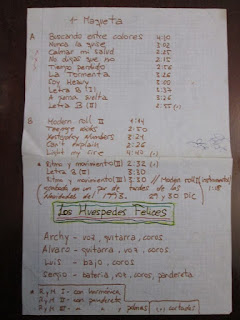 1ª Maqueta
A Buscando entre colores 4:20
Nunca la quise 3:02
Calmar mi salud 2:25
No digas que no 2:15
Tiempo perdido 2:56
La Tormenta 3:26
Soy Heavy 3:05
Letra B (I) 3:37
A pierna suelta 3:26
Letra B (II) 2:55
B Modern roll II 4:44
Teenage kicks 2:50
Astronomy Numbers 2:25
Can't explain 2:26
Light my fire 4:43
Ritmo y movimiento (II) 2:32
Letra B (II) 3:30
Ritmo y movimiento (III) 3:30 / Modern roll (instrumental)
grabada en un par de tardes de las 1:18
Navidades del 1983. 29 y 30 DIC
Los Huespedes Felices
Archy - voz, guitarra, coros
Alvaro - guitarra, coros
Luis - bajo, coros
Sergio - bateria, voz, coros, pandereta
R y M I - con harmónica
R y M II - con pandereta
R y M III - " " y palmas cortadas